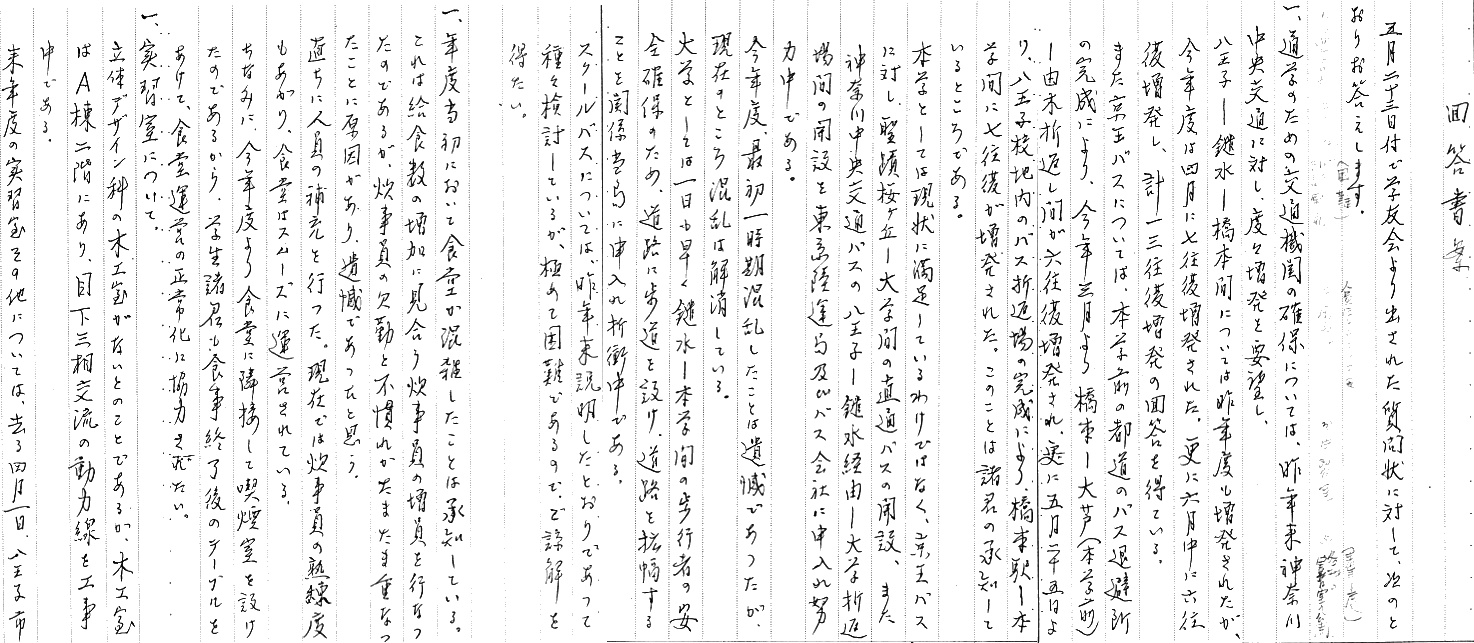 回答書案
五月二十三日付で学友会より出された質問状に対して、次のと
おりお答えします。
一、通学のための交通機関の確保については、昨年来神奈川
中央交通に対し、度々増発を要望し、
八王子ー鑓水ー橋本間については昨年度も増発されたが、
今年度は四月に七往復増発された。更に六月中に六往
復増発し、計一三往復増発の回答を得ている。
また京王バスについては、本学前の都道のバス退避所
の完成により、今年三月より橋本ー大芦(本学前)
ー由木折返し間が六往復増発され、更に五月二十五日よ
り、八王子校地内のバス折返場の完成により、橋本駅ー本
学間に七往復が増発された。このことは諸君の承知して
いるところである。
本学としては現状に満足しているわけではなく、京王バス
に対し、聖蹟桜ヶ丘ー大学間の直通バスの開設、また
神奈川中央交通バスの八王子ー鑓水経由ー大学折返
場間の開設を東京陸運局及びバス会社に申入れ努
力中である。
今年度、最初一時期混乱したことは遺憾であつたが、
現在のところ混乱は解消している。
大学としては一日も早く鑓水ー本学間の歩行者の安
全確保のため、道路に歩道を設け、道路を拡幅する
ことを関係当局に申入れ折衝中である。
スクールバスについては、昨年来説明したとおりであつて
種々検討しているが、極めて困難であるので、ご諒解を
得たい。
一、年度当初において食堂が混雑したことは承知している。
これは給食数の増加に見合う炊事員の増員を行なつ
たのであるが、炊事員の欠勤と不慣れがたまたま重なつ
たことに原因があり、遺憾であつたと思う。
直ちに人員の補充を行つた。現在では炊事員の熟練度
もあがり、食堂はスムーズに運営されている。
ちなみに、今年度より食堂に隣接して喫煙室を設け
たのであるから、学生諸君も食事終了後のテーブルを
あけて、食堂運営の正常化に協力されたい。
一、実習室について。
立体デザイン科の木工室がないとのことであるが、木工室
はA棟二階にあり、目下三相交流の動力線を工事
中である。
来年度の実習室その他については、去る四月一日、八王子市